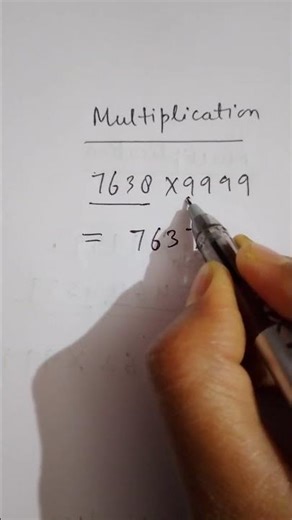 Multiplication
7638 ×9999
= 7637